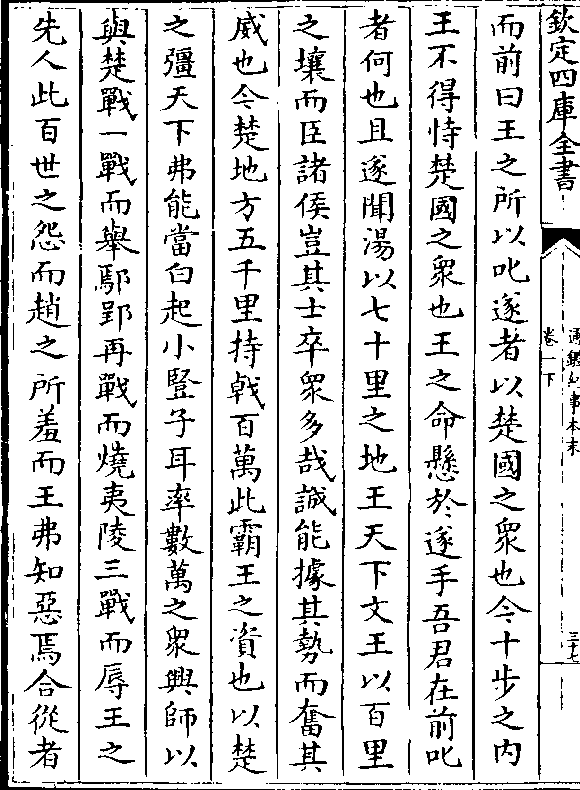 欽定四庫全書
通鑑紀事本末
卷一下
三十七
而前曰王之所以叱遂者以楚國之衆也今十步之内
王不得恃楚國之衆也王之命懸於遂手吾君在前叱
者何也且遂聞湯以七十里之地王天下文王以百里
之壤而臣諸侯豈其士卒衆多哉誠能據其勢而奮其
威也今楚地方五千里持㦸百萬此霸王之資也以楚
之彊天下弗能當白起小豎子耳率數萬之衆興師以
與楚戰一戰而舉鄢郢再戰而燒夷陵三戰而辱王之
先人此百世之怨而趙之所羞而王弗知惡焉合從者